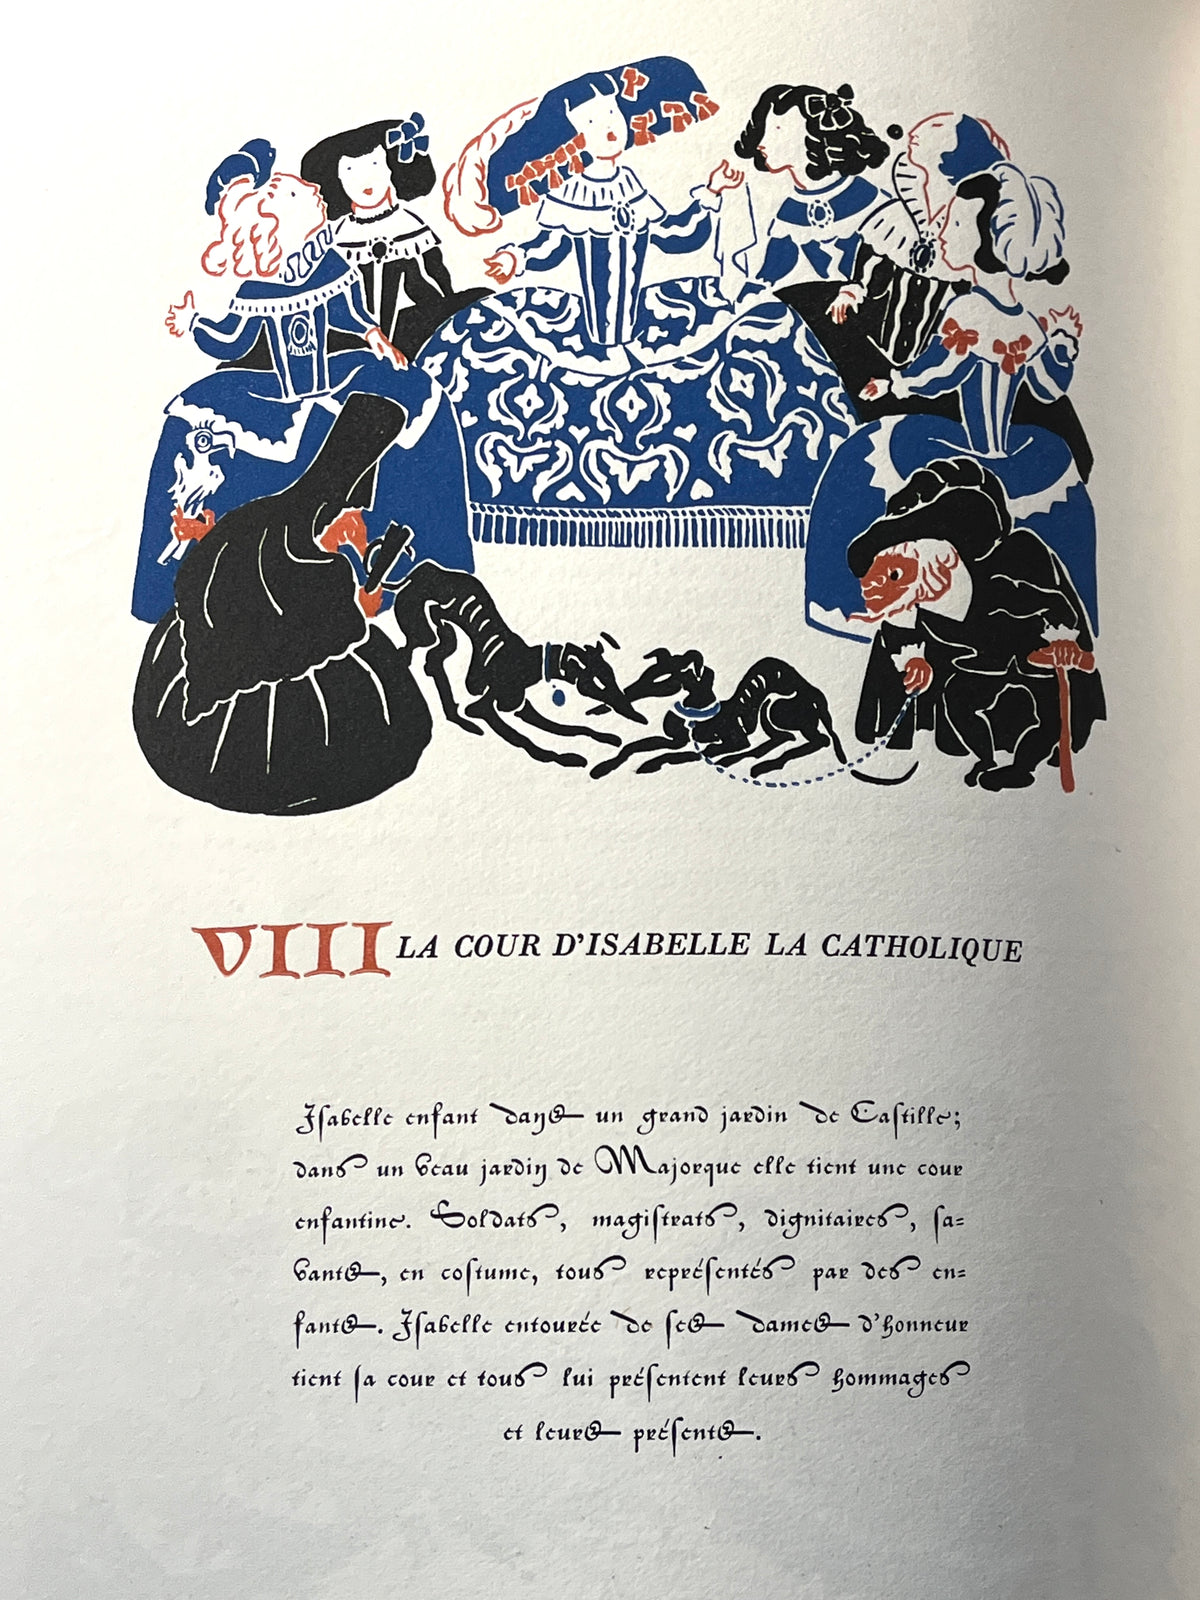 VIII LA COUR D'ISABELLE LA CATHOLIQUE
Isabelle enfant dans un grand jardin de Castille;
dans un beau jardin de Majorque elle tient une cour
enfantine. Soldats, magistrats, dignitaires, sa=
vants, en costume, tous représentés par des en=
fants. Isabelle entourée de ses dames d'honneur
tient sa cour et tous lui présentent leurs hommages
et leurs présents.